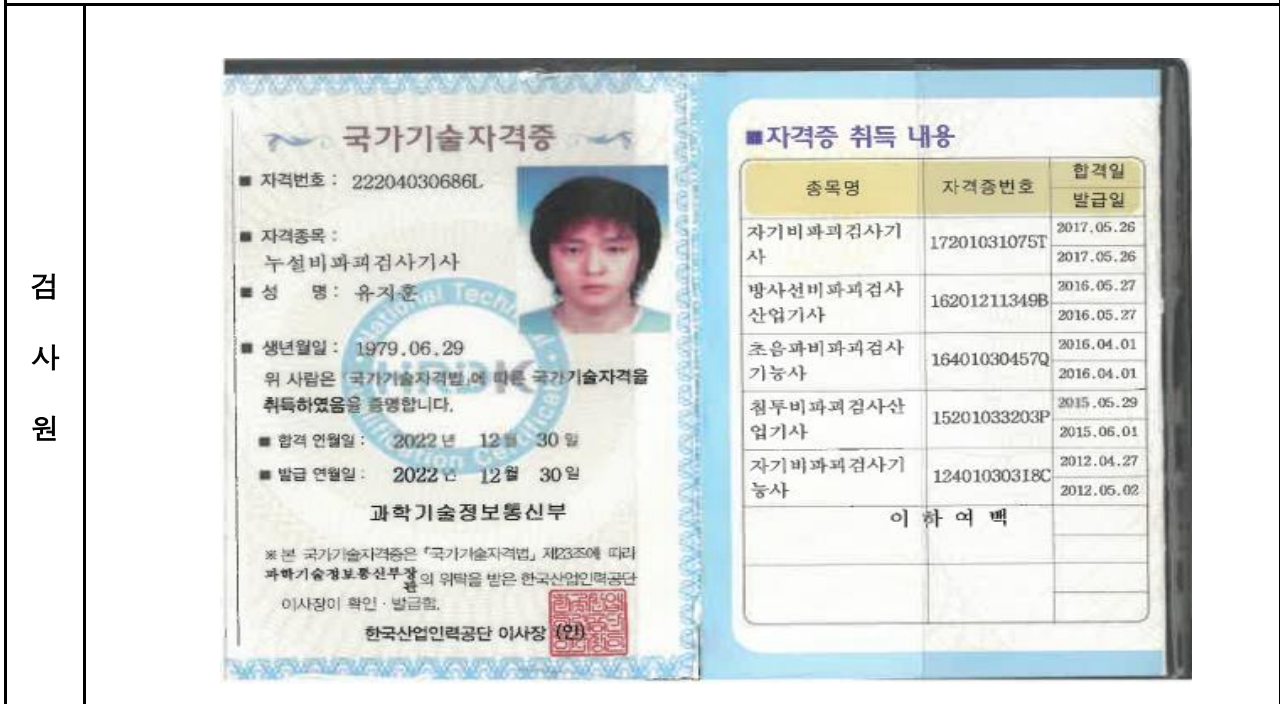 검
사
원
국가기술자격증
■ 자격번호 : 22204030686L
■ 자격종목 :
누설비파괴검사기사
■ 성 명 : 유지훈
■ 생년월일 : 1979.06.29
위 사람은 「국가기술자격법」에 따른 국가기술자격을
취득하였음을 증명합니다.
■ 합격 연월일 : 2022 년 12 월 30 일
■ 발급 연월일 : 2022 년 12 월 30 일
과학기술정보통신부
※ 본 국가기술자격증은 「국가기술자격법」 제23조에 따라
과학기술정보통신부장관의 위탁을 받은 한국산업인력공단
이사장이 확인 · 발급함.
한국산업인력공단 이사장 (인)
■자격증 취득 내용
종목명 자격증번호 합격일
발급일
자기비파괴검사기사 17201031075T 2017.05.26
2017.05.26
방사선비파괴검사산업기사 16201211349B 2016.05.27
2016.05.27
초음파비파괴검사기능사 16401030457Q 2016.04.01
2016.04.01
침투비파괴검사산업기사 15201033203P 2015.05.29
2015.06.01
자기비파괴검사기능사 12401030318C 2012.04.27
2012.05.02
이 하 여 백